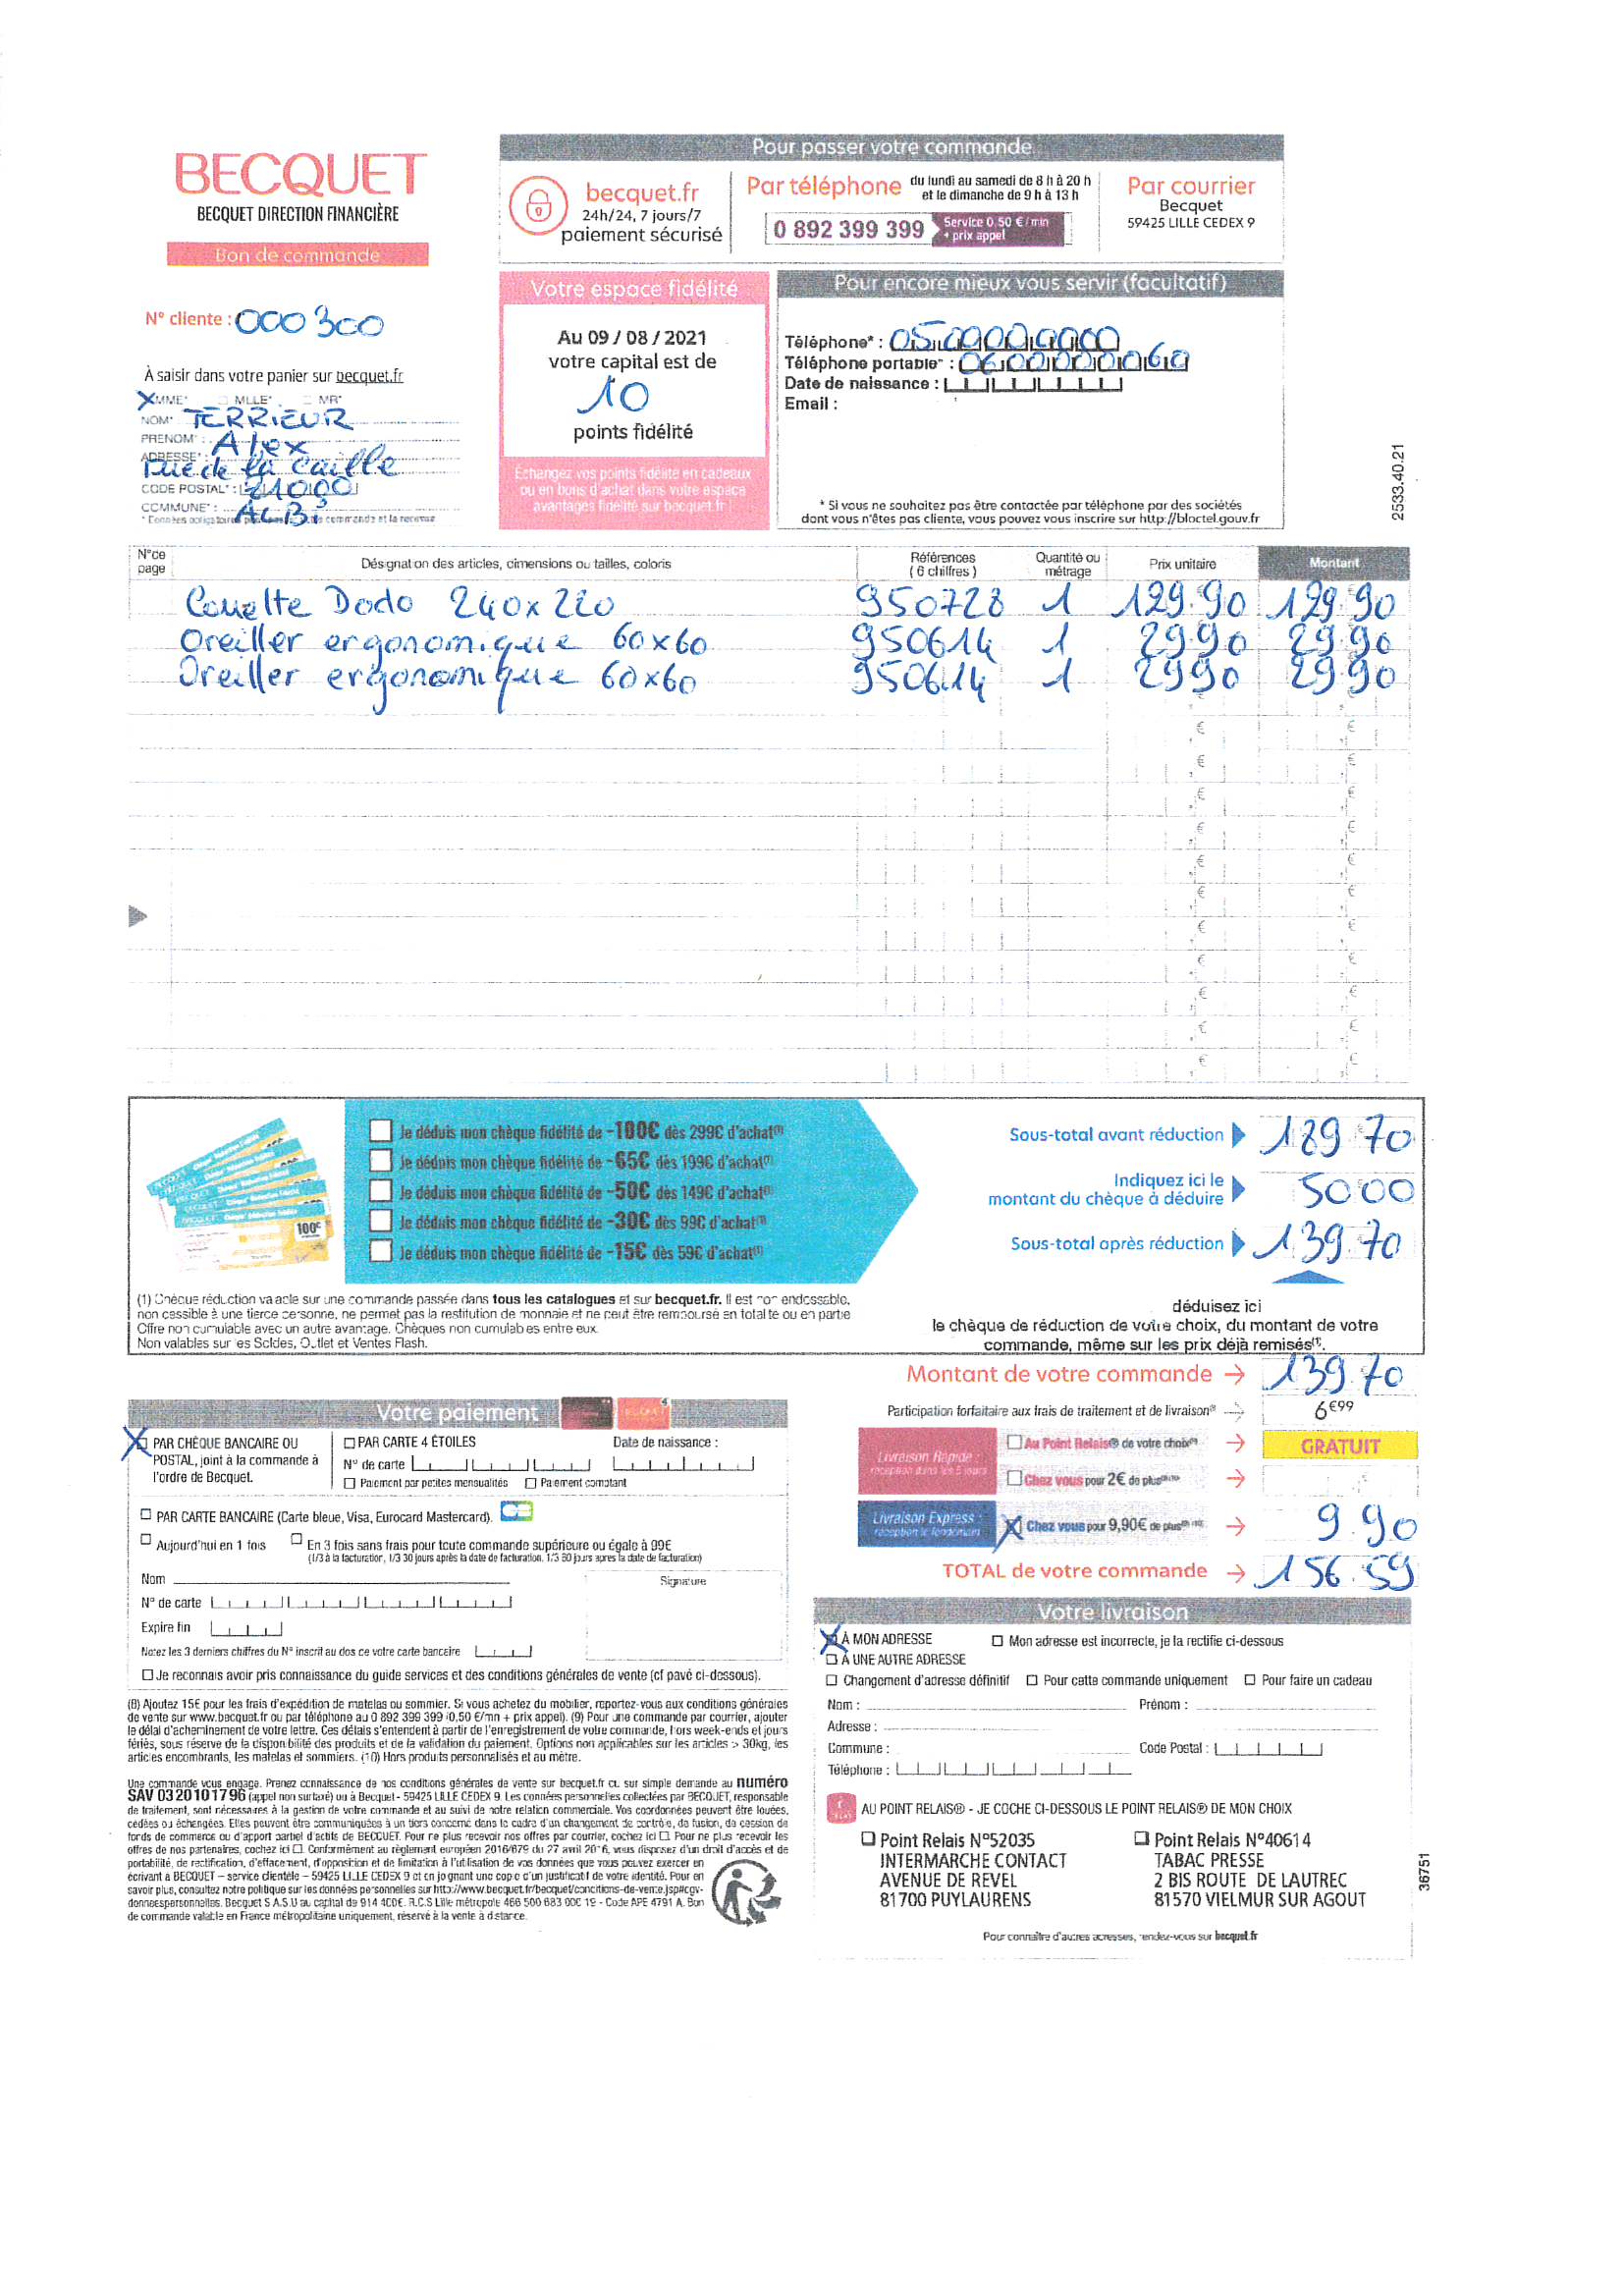 BECQUET
BECQUET DIRECTION FINANCIÈRE
Bon de commande
Pour passer votre commande
becquet.fr
24h/24, 7 jours/7
paiement sécurisé
Par téléphone du lundi au samedi de 8 h à 20 h
et le dimanche de 9 h à 13 h
0 892 399 399 Service 0,50 € / min
+ prix appel
Par courrier
Becquet
59425 LILLE CEDEX 9
N° cliente : 000300
À saisir dans votre panier sur becquet.fr
X MME* MLLE* MR*
NOM* TERRIEUR
PRENOM* : Alex
ADRESSE* :
Rue de la Caille
CODE POSTAL* :
COMMUNE* : ALBI
Votre espace fidélité
Au 09 / 08 / 2021
votre capital est de
10
points fidélité
Echangez vos points fidélité en cadeaux
ou en bons d'achat dans votre espace
avantages fidélité sur becquet.fr
Pour encore mieux vous servir (facultatif)
Téléphone* : 0500000000
Téléphone portable* : 0600000060
Date de naissance :
Email :
* Si vous ne souhaitez pas être contactée par téléphone par des sociétés
dont vous n'êtes pas cliente, vous pouvez vous inscrire sur http://bloctel.gouv.fr
2533.40.21
N°de page Désignation des articles, dimensions ou tailles, coloris Références (6 chiffres) Quantité ou métrage Prix unitaire Montant
Couette Dodo 240x220 950728 1 129.90 129.90
Oreiller ergonomique 60x60 950614 1 29.90 29.90
Oreiller ergonomique 60x60 950614 1 29.90 29.90
Je déduis mon chèque fidélité de -100€ dès 299€ d'achat(1)
Je déduis mon chèque fidélité de -65€ dès 199€ d'achat(1)
Je déduis mon chèque fidélité de -50€ dès 149€ d'achat(1)
Je déduis mon chèque fidélité de -30€ dès 99€ d'achat(1)
Je déduis mon chèque fidélité de -15€ dès 59€ d'achat(1)
100€
Sous-total avant réduction 189 70
Indiquez ici le
montant du chèque à déduire 50 00
Sous-total après réduction 139.70
(1) Chèque réduction valable sur une commande passée dans tous les catalogues et sur becquet.fr. Il est non endossable,
non cessible à une tierce personne, ne permet pas la restitution de monnaie et ne peut être remboursé en totalité ou en partie
Offre non cumulable avec un autre avantage. Chèques non cumulables entre eux.
Non valables sur les Soldes, Outlet et Ventes Flash.
déduisez ici
le chèque de réduction de votre choix, du montant de votre
commande, même sur les prix déjà remisés(1).
Montant de votre commande → 139.70
Participation forfaitaire aux frais de traitement et de livraison(8) 6€99
Livraison Rapide :
réception dans les 5 jours
Au Point Relais® de votre choix(9) → GRATUIT
Chez vous pour 2€ de plus →
Livraison Express :
réception le lendemain
X Chez vous pour 9,90€ de plus → 9.90
TOTAL de votre commande → 156.59
Votre paiement
X PAR CHÈQUE BANCAIRE OU
POSTAL, joint à la commande à
l'ordre de Becquet.
PAR CARTE 4 ÉTOILES Date de naissance :
N° de carte
Paiement par petites mensualités Paiement comptant
PAR CARTE BANCAIRE (Carte bleue, Visa, Eurocard Mastercard).
Aujourd'hui en 1 fois En 3 fois sans frais pour toute commande supérieure ou égale à 99€
(1/3 à la facturation, 1/3 30 jours après la date de facturation, 1/3 60 jours apres la date de facturation)
Nom Signature
N° de carte
Expire fin
Notez les 3 derniers chiffres du N° inscrit au dos de votre carte bancaire
Je reconnais avoir pris connaissance du guide services et des conditions générales de vente (cf pavé ci-dessous).
(8) Ajoutez 15€ pour les frais d'expédition de matelas ou sommier. Si vous achetez du mobilier, reportez-vous aux conditions générales
de vente sur www.becquet.fr ou par téléphone au 0 892 399 399 (0,50 €/mn + prix appel). (9) Pour une commande par courrier, ajouter
le délai d'acheminement de votre lettre. Ces délais s'entendent à partir de l'enregistrement de votre commande, hors week-ends et jours
fériés, sous réserve de la disponibilité des produits et de la validation du paiement. Options non applicables sur les articles > 30kg, les
articles encombrants, les matelas et sommiers. (10) Hors produits personnalisés et au mètre.
Une commande vous engage. Prenez connaissance de nos conditions générales de vente sur becquet.fr ou sur simple demande au numéro
SAV 0320101796 (appel non surtaxé) ou à Becquet - 59425 LILLE CEDEX 9. Les données personnelles collectées par BECQUET, responsable
de traitement, sont nécessaires à la gestion de votre commande et au suivi de notre relation commerciale. Vos coordonnées peuvent être louées,
cédées ou échangées. Elles peuvent être communiquées à un tiers concerné dans le cadre d'un changement de contrôle, de fusion, de cession de
fonds de commerce ou d'apport partiel d'actifs de BECQUET. Pour ne plus recevoir nos offres par courrier, cochez ici Pour ne plus recevoir les
offres de nos partenaires, cochez ici Conformément au règlement européen 2016/679 du 27 avril 2016, vous disposez d'un droit d'accès et de
portabilité, de rectification, d'effacement, d'opposition et de limitation à l'utilisation de vos données que vous pouvez exercer en
écrivant à BECQUET – service clientèle – 59425 LILLE CEDEX 9 et en joignant une copie d'un justificatif de votre identité. Pour en
savoir plus, consultez notre politique sur les données personnelles sur http://www.becquet.fr/becquet/conditions-de-vente.jsp#cgv-
donneespersonnelles. Becquet S.A.S.U au capital de 914 400€. R.C.S Lille métropole 466 500 683 000 19 - Code APE 4791 A. Bon
de commande valable en France métropolitaine uniquement, réservé à la vente à distance.
Votre livraison
X À MON ADRESSE Mon adresse est incorrecte, je la rectifie ci-dessous
À UNE AUTRE ADRESSE
Changement d'adresse définitif Pour cette commande uniquement Pour faire un cadeau
Nom : Prénom :
Adresse :
Commune : Code Postal :
Téléphone :
AU POINT RELAIS® - JE COCHE CI-DESSOUS LE POINT RELAIS® DE MON CHOIX
Point Relais N°52035
INTERMARCHE CONTACT
AVENUE DE REVEL
81700 PUYLAURENS
Point Relais N°40614
TABAC PRESSE
2 BIS ROUTE DE LAUTREC
81570 VIELMUR SUR AGOUT
Pour connaître d'autres adresses, rendez-vous sur becquet.fr
36751